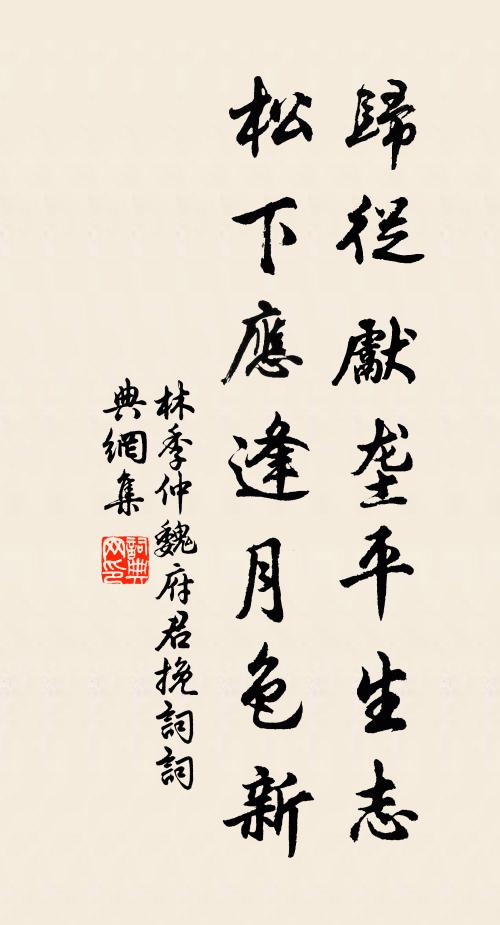 歸從獻垄平生志
松下應逢月色新
林季仲魏府君挽詞詞
典網集
詞典
网印